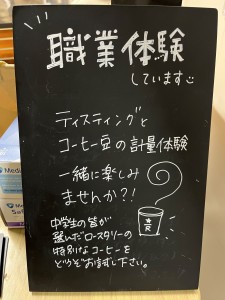 職業体験
しています
ティスティングと
コーヒー豆の計量体験
一緒に楽しみ
ませんか?!
中学生の皆が
選んだロースタリーの
特別なコーヒーを
どうぞお試し下さい。
Medi
Medi
Saf